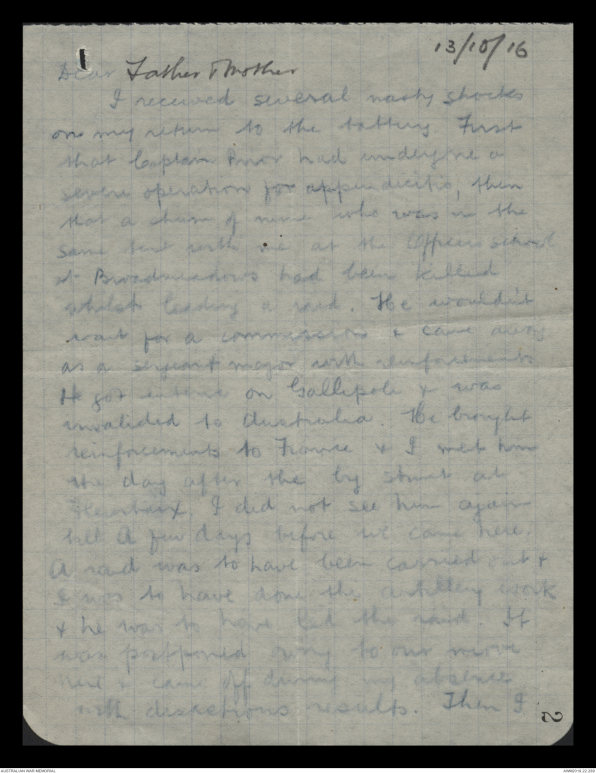 13/10/16
Dear Father & Mother
I received several nasty shocks
on my return to the battery First
that Captain had undergone a
severe operation for appendicitis, then
that a chum of mine who was in the
same tent with me at the Officers school
at Broadmeadows had been killed
whilst leading a raid. He wouldn't
wait for a commission & came away
as a sergeant major with reinforcements
He got enteric on Gallipoli & was
invalided to Australia. He brought
reinforcements to France & I met him
the day after the big stunt at
Fleurbaix. I did not see him again
till a few days before we came here.
A raid was to have been carried out &
I was to have done the artillery work
& he was to have led the raid. It
was postponed owing to our move
here & came off during my absence
with disastrous results. Then I
2
AUSTRALIAN WAR MEMORIAL